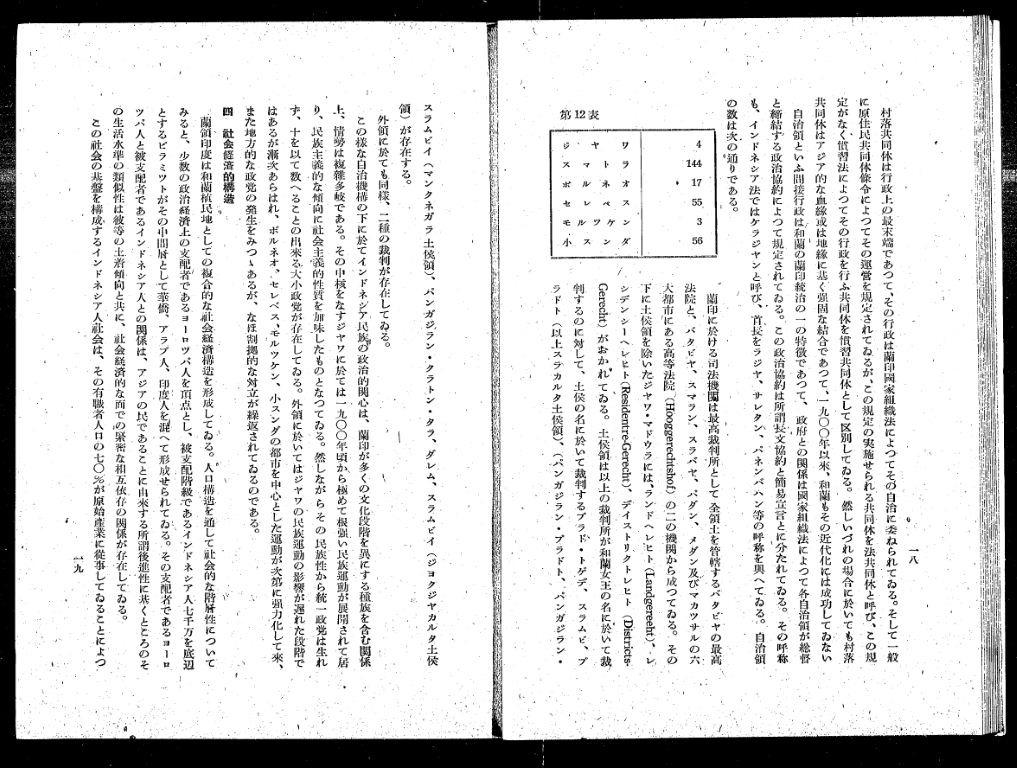 一八
村落共同体は行政上の最末端であつて、その行政は蘭印國家組織法によつてその自治に委ねられてゐる。そして一般
に原住民共同体條令によつてその運營を規定されてゐるが、この規定の実施せられる共同体を法共同体と呼び、この規
定がなく慣習法によつてその行政を行ふ共同体を慣習共同体として区別してゐる。然しいづれの場合に於いても村落
共同体はアジア的な血縁或は地縁に基く强固な結合であつて、一九〇〇年以来、和蘭もその近代化には成功してゐない
自治領といふ間接行政は和蘭の蘭印統治の一の特徴であつて、政府との関係は國家組織法によつて各自治領が総督
と締結する政治協約によつて規定されてゐる。この政治協約は所謂長文協約と簡易宣言とに分たれてゐる。その呼称
も、インドネシア法ではケラジヤンと呼び、首長をラジヤ、サルタン、パネンバハン等の呼称を與へてゐる。自治領
の数は次の通りである。
第12表
ジヤワ 4
スマトラ 144
ボルネオ 17
セレベス 55
モルツケン 3
小スンダ 56
蘭印に於ける司法機関は最高裁判所として全領土を管轄するバタビヤの最高
法院と、バタビヤ、スマラン、スラバヤ、パダン、メダン及びマカツサルの六
大都市にある高等法院(Hooggerechtshof)の二の機関から成つてゐる。その
下に土侯領を除いたジヤワ・マドウラには、ランドヘレヒト(Landgereeht)、レ
シデンシーヘレヒト(Residentre-Gerecht)デイストリクトレヒト(Districts-
Gerecht)がおかれてゐる。土侯領は以上の裁判所が和蘭女王の名に於いて裁
判するのに対して、土侯の名に於いて裁判するプラド・トゲデ、スラムビ、プ
ラドト(以上スラカルタ土侯領)、(パンガジラン・プラドト、パンガジラン・
スラムビイ(マンクネガラ土侯領)、パンガジラン・クラトン・ダラ、ダレム、スラムビイ(ジヨクジヤカルタ土侯
領)が存在する。
外領に於ても同様、二種の裁判が存在してゐる。
この様な自治機構の下に於てインドネジア民族の政治的関心は、蘭印が多くの文化段階を異にする種族を含む関係
上、情勢は複雑多岐である。その中核をなすジヤワに於ては一九〇〇年頃から極めて根强い民族運動が展開されて居
り、民族主義的な傾向に社会主義的性質を加味したものとなつてゐる。然しながらその民族性から統一政党は生れ
ず、十を以て数へることの出来る大小政党が存在してゐる。外領に於いてはジヤワの民族運動の影響が遅れた段階で
はあるが漸次あらはれ、ボルネオ、セレベス、モルツケン、小スンダの都市を中心とした運動が次第に強力化して来、
また地方的な政党の発生をみつゝあるが、なほ割拠的な対立が繰返されてゐるのである。
四 社会経済的構造
蘭領印度は和蘭植民地としての複合的な社会経済構造を形成してゐる。人口構造を通して社会的な階層性について
みると、少数の政治経済上の支配者であるヨーロツパ人を頂点とし、被支配階級であるインドネシア人七千万を底辺
とするピラミツトがその中間層として華僑、アラブ人、印度人を混へて形成せられてゐる。その支配者であるヨーロ
ツパ人と被支配者であるインドネシア人との関係は、アジアの民であることに由来する所謂後進性に基くところのそ
の生活水準の類似性は彼等の土着傾向と共に、社会経済的な面での緊密な相互依存の関係が存在してゐる。
この社会の基盤を構成するインドネシア人社会は、その有職者人口の七〇%が原始産業に從事してゐることによつ
一九